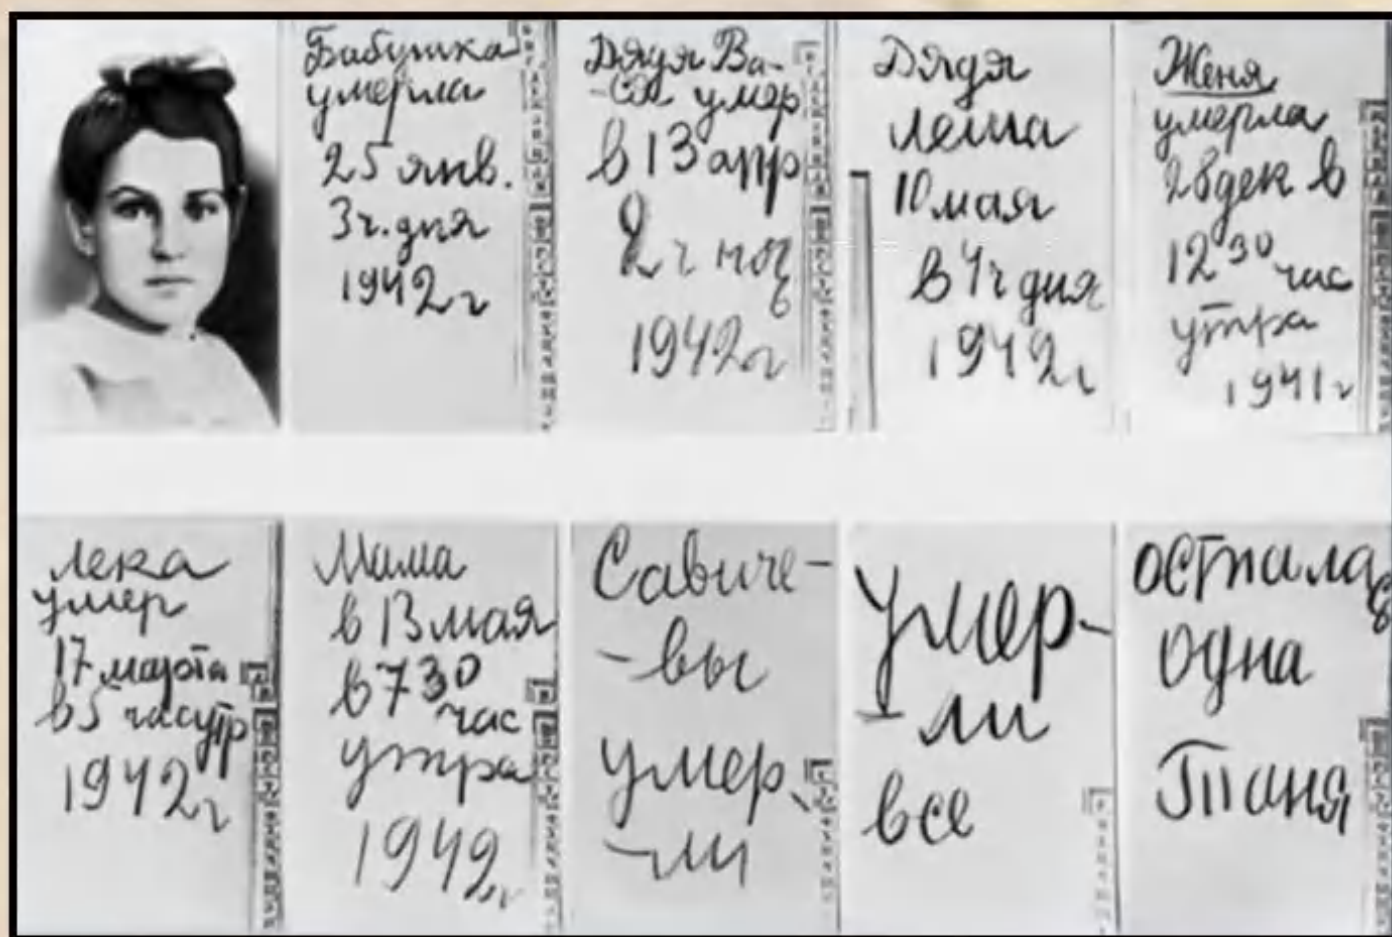 Бабушка
умерла
25 янв.
3ч. дня
1942 г
Дядя Ва-
-ся умер
в 13 апр
2 ч ноч
ь
1942г
Дядя
Леша
10 мая
в 4ч дня
1942г
Женя
умерла
28 дек в
12 30 час
утра
1941г
Лека
умер
17 марта
в 5 час утр
1942г
Мама
в 13 мая
в 7 30
час
утра
1942г
Савиче-
-вы
умер
-ли
Умер-
-ли
все
Осталась
одна
Таня